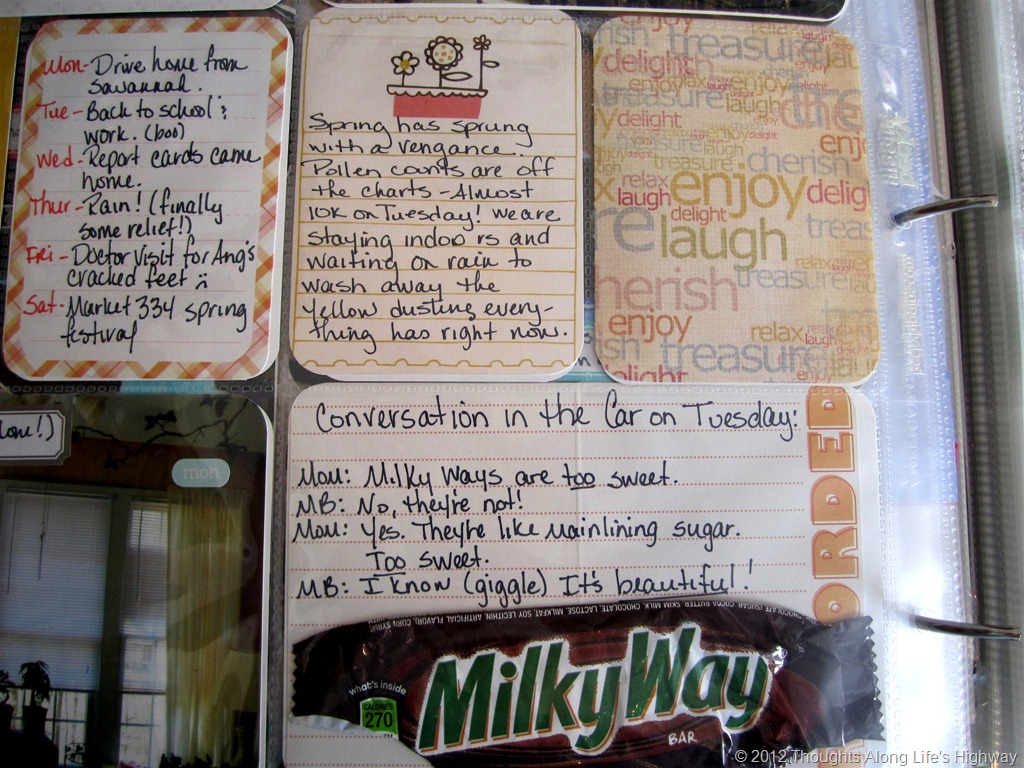 Mon - Drive home from
Savannah.
Tue - Back to school &
work. (boo)
Wed - Report cards came
home.
Thur - Rain! (finally
some relief!)
Fri - Doctor visit for Ang's
cracked feet :(
Sat - Market 334 spring
festival
Spring has sprung
with a vengance.
Pollen counts are off
the charts - Almost
10K on Tuesday! We are
staying indoors and
waiting on rain to
wash away the
yellow dusting every-
thing has right now.
treasure
delight
enjoy
laugh
the
cherish
treasure
relax
enjoy
delight
laugh
cherish
enjoy
relax
laugh
treasure
delight
mon
Conversation in the Car on Tuesday:
Mom: Milky Ways are too sweet.
MB: No, they're not!
Mom: Yes. They're like mainlining sugar.
Too sweet.
MB: I know (giggle) It's beautiful!
ORDED
what's inside
CALORIES
270
MilkyWay
BAR
© 2012 Thoughts Along Life's Highway